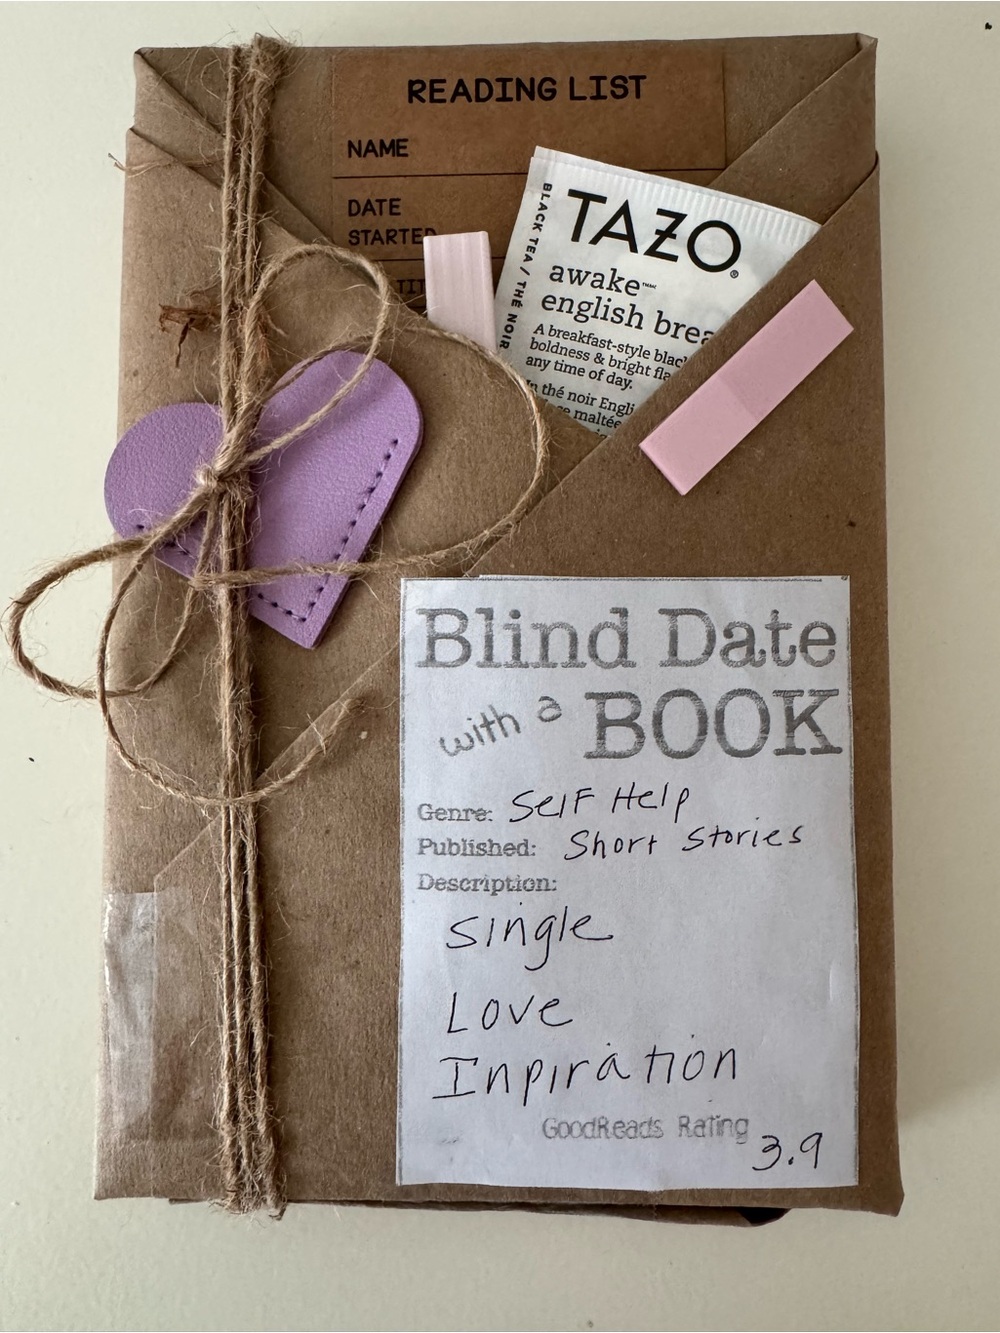 READING LIST
NAME
DATE
STARTED
BLACK TEA / THÉ NOIR
TAZO®
awake™
english brea
A breakfast-style blac
boldness & bright fla
any time of day.
In thé noir Engli
maltée
Blind Date
with a BOOK
Genre: Self Help
Published: Short Stories
Description:
Single
Love
Inpiration
GoodReads Rating
3.9